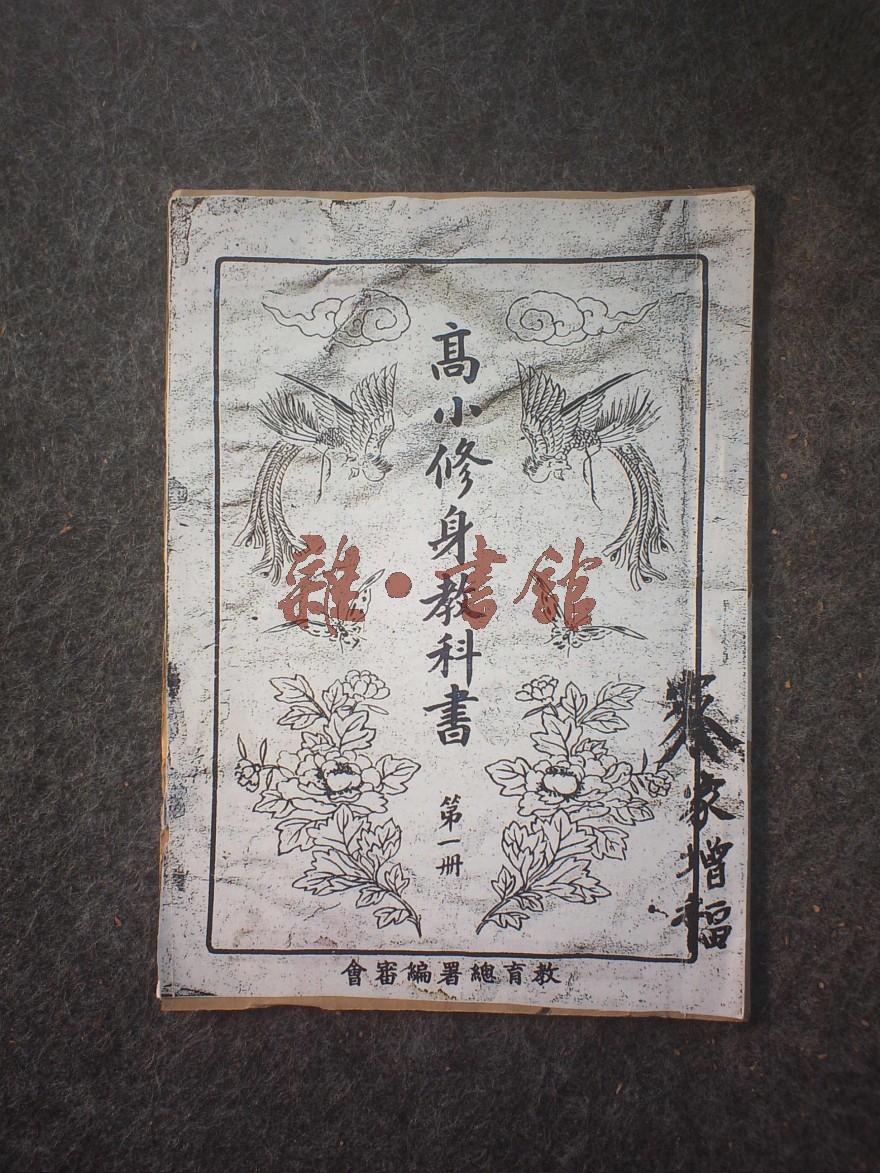 高小修身教科書
第一册
教育總署編審會
家增福
雜·書館